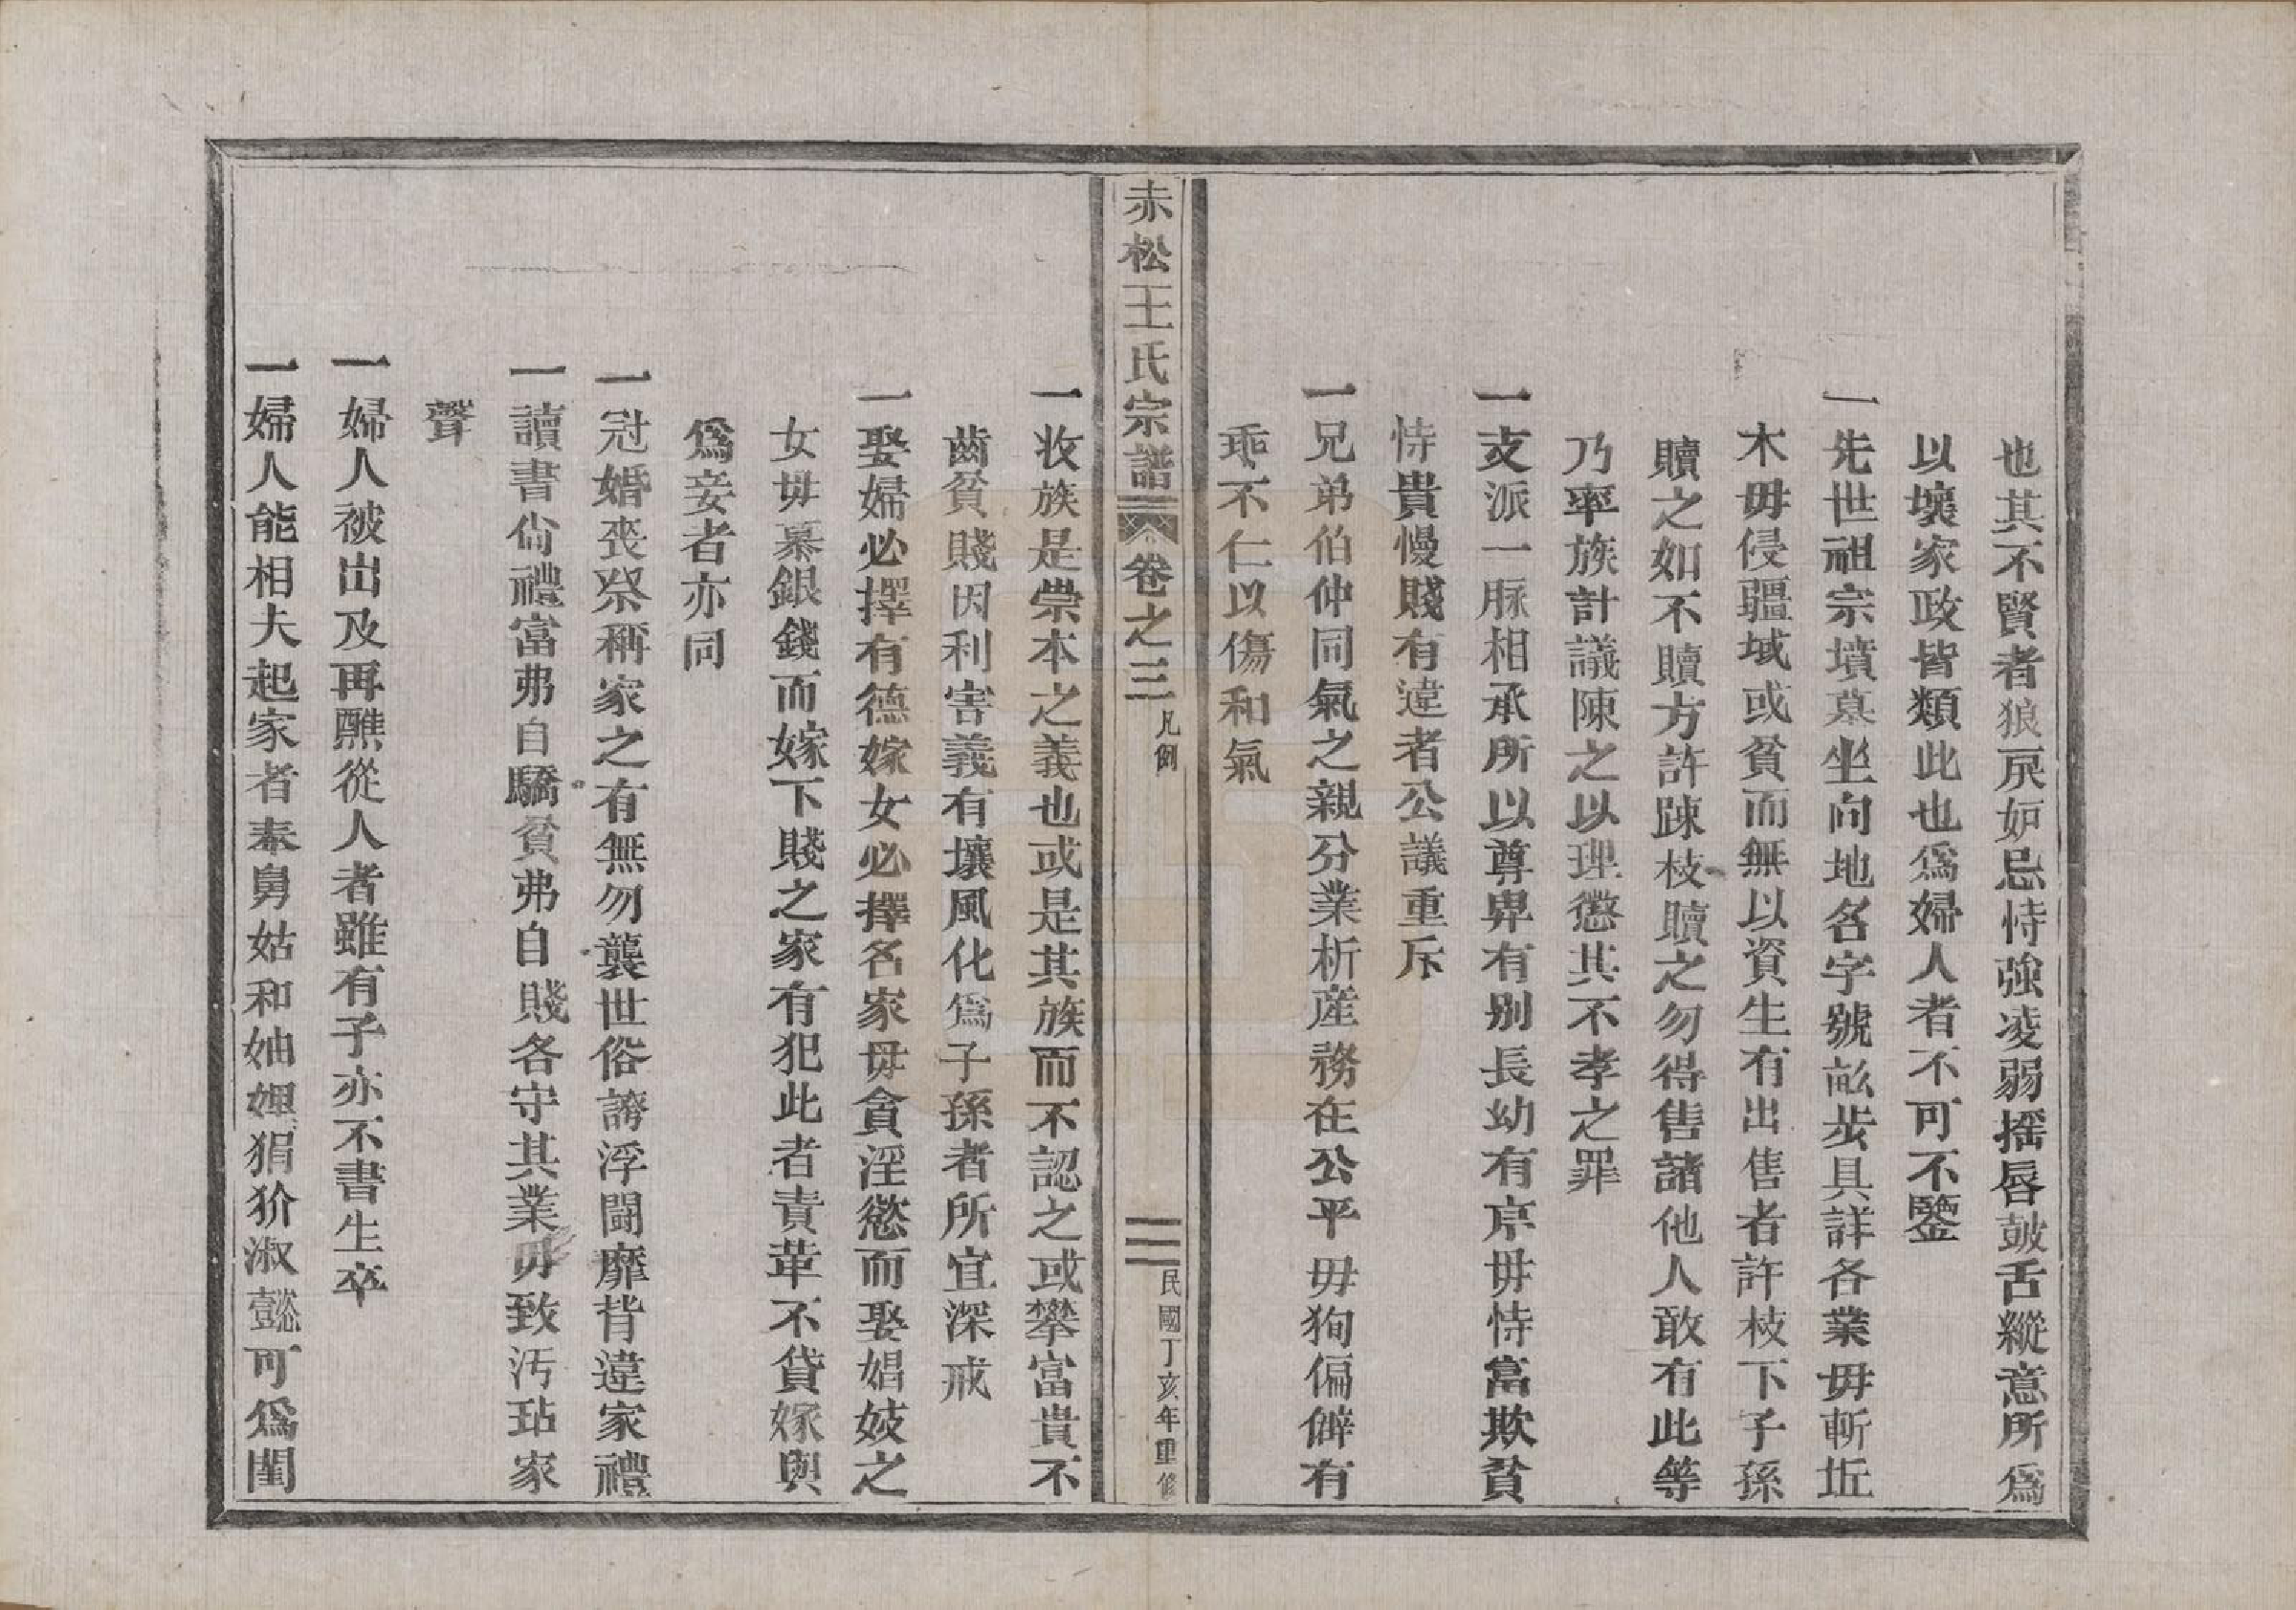 也其不賢者狼戾妒忌恃強凌弱摇唇皷舌縱意所爲
以壞家政皆類此也爲婦人者不可不鑒
一先世祖宗墳墓坐向地名字號畝步具詳各業毋斬坵
木毋侵疆域或貧而無以資生有出售者許枝下子孫
贖之如不贖方許踈枝贖之勿得售諸他人敢有此等
乃率族計議陳之以理懲其不孝之罪
一支派一脉相承所以尊卑有别長幼有序毋恃富欺貧
恃貴慢賤有違者公議重斥
一兄弟伯仲同氣之親分業析産務在公平毋狥偏僻有
乖不仁以傷和氣
赤松王氏宗譜 卷之三 凡例 民國丁亥年重修
一收族是崇本之義也或是其族而不認之或攀富貴不
齒貧賤因利害義有壞風化爲子孫者所宜深戒
一娶婦必擇有德嫁女必擇名家毋貪淫慾而娶娼妓之
女毋慕銀錢而嫁下賤之家有犯此者責革不貸嫁與
爲妾者亦同
一冠婚喪祭稱家之有無勿襲世俗誇浮鬭靡背違家禮
一讀書尙禮富弗自驕貧弗自賤各守其業毋致汚玷家
聲
一婦人被出及再醮從人者雖有子亦不書生卒
一婦人能相夫起家者奉舅姑和妯娌狷狝淑懿可爲閨